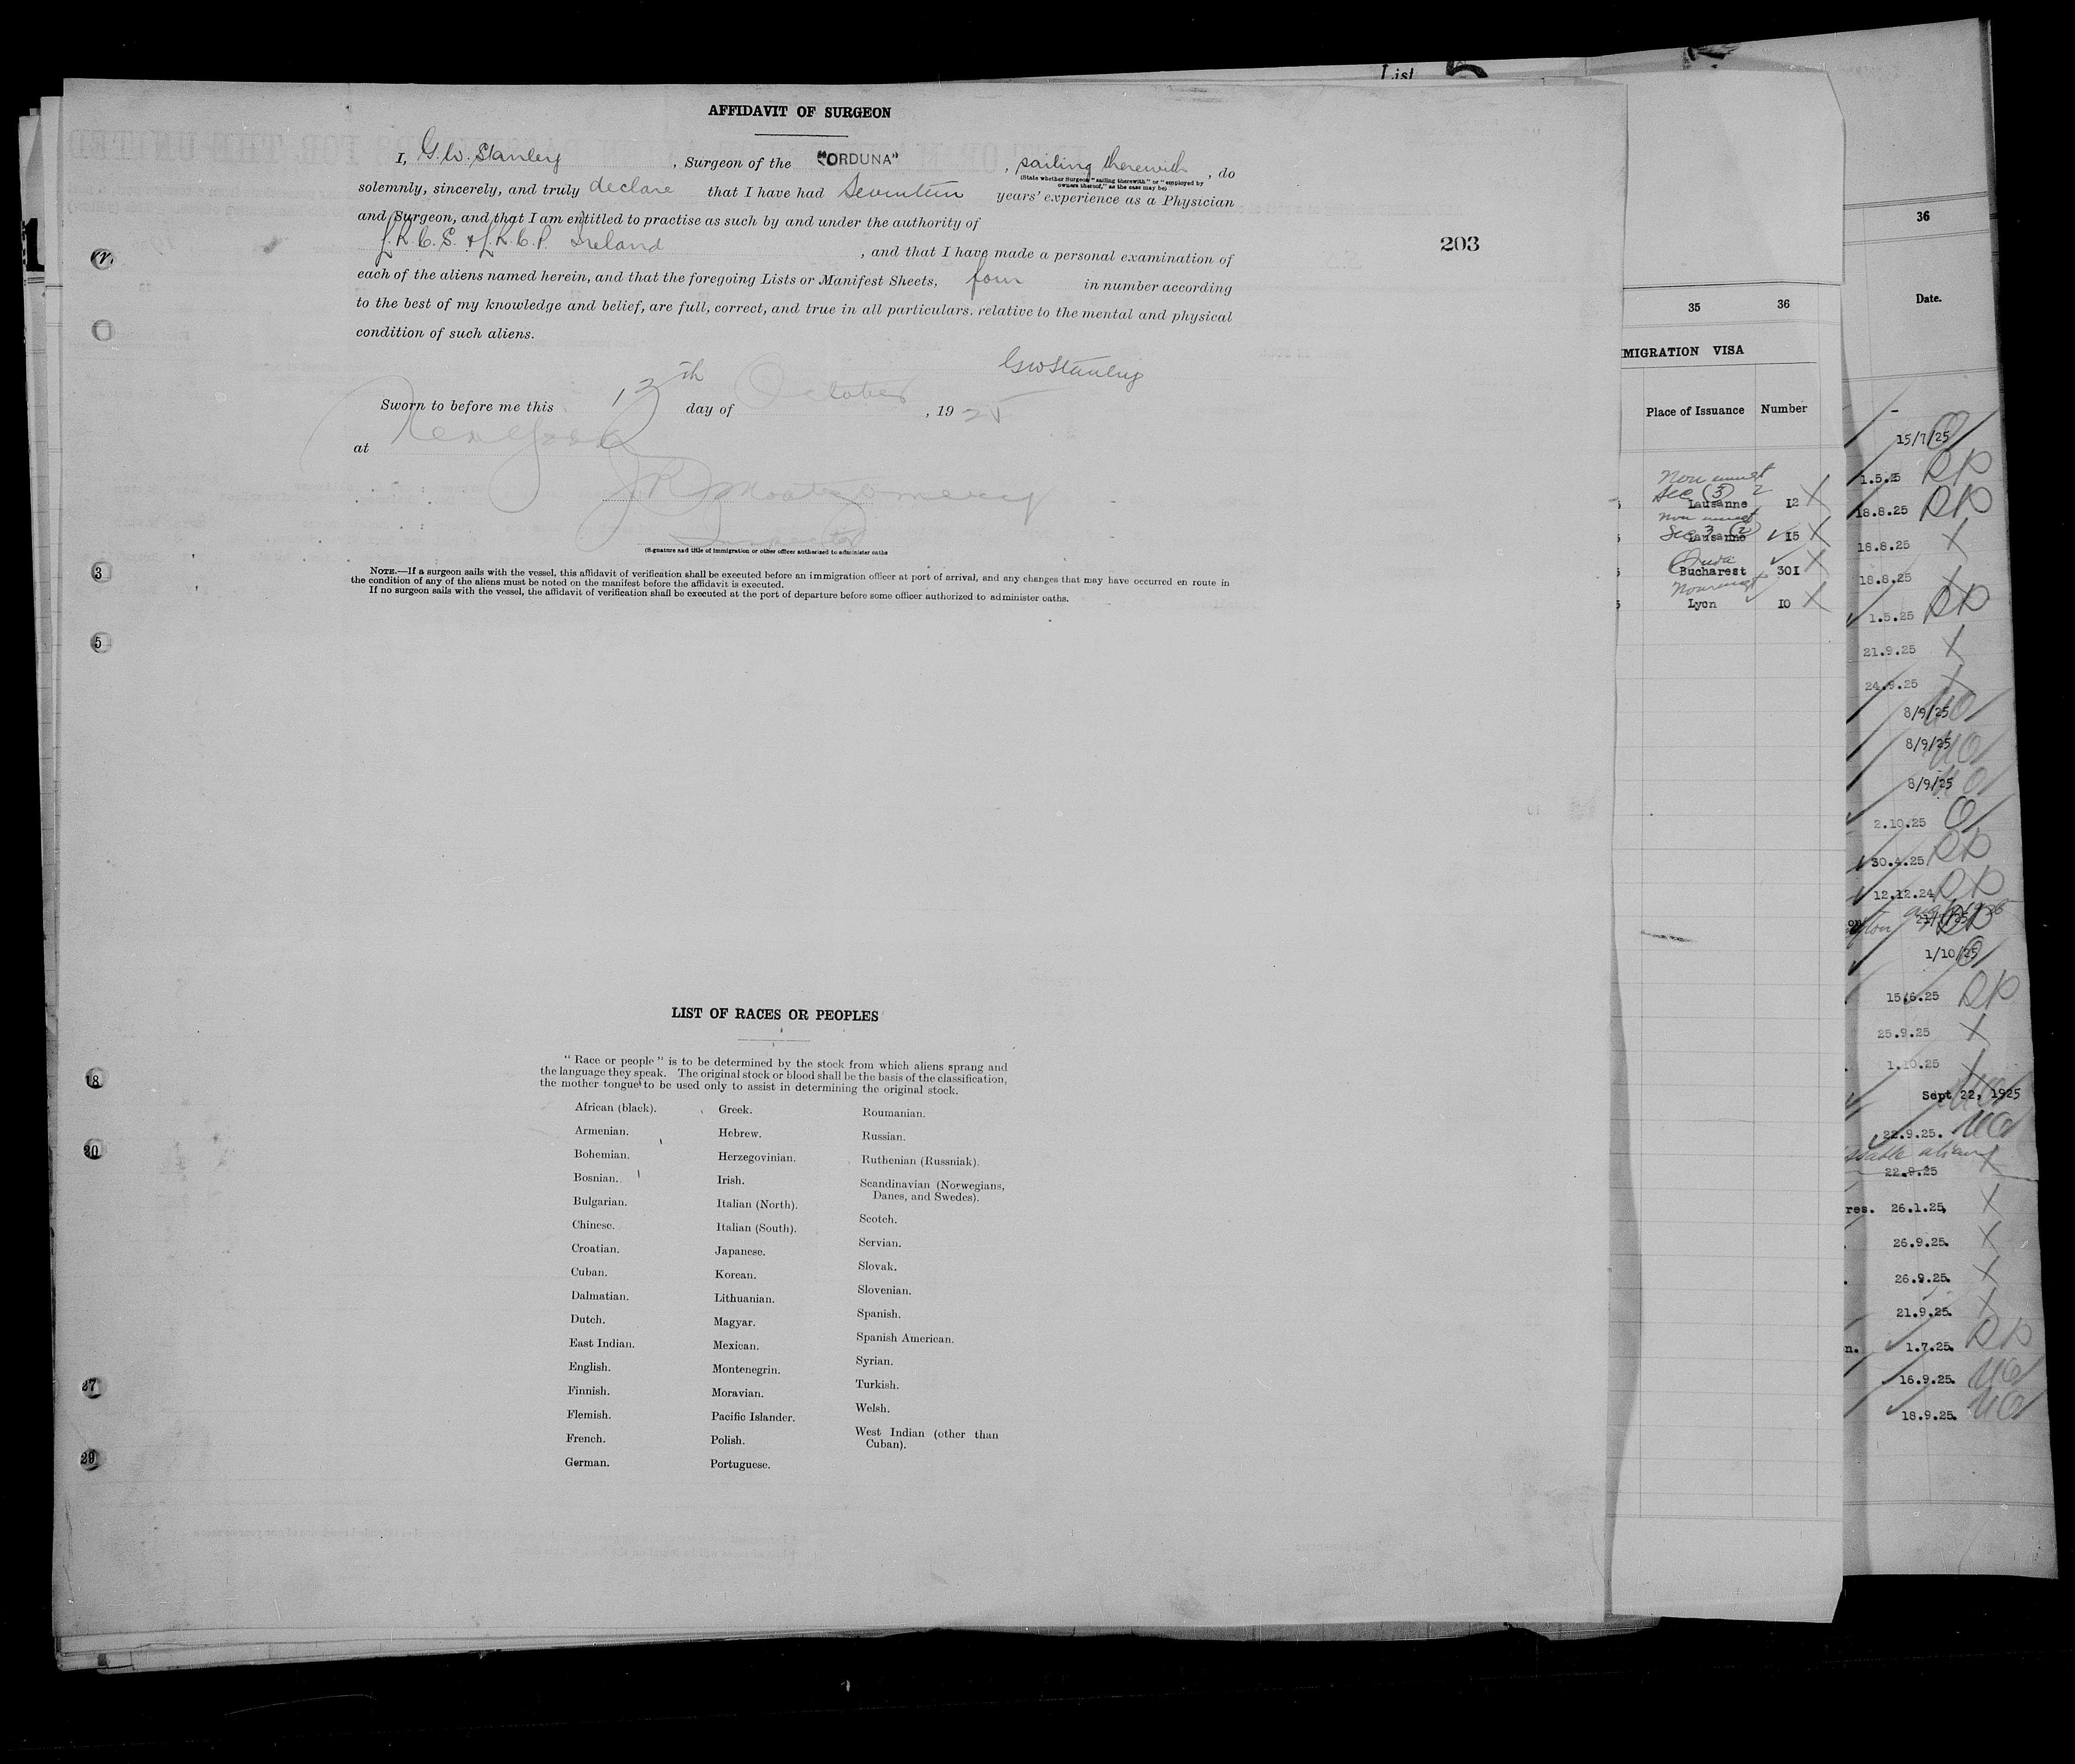 List 5
AFFIDAVIT OF SURGEON
I, G.W. Stanley, Surgeon of the "ORDUNA", sailing therewith, do
(State whether Surgeon "sailing therewith" or "employed by
owners thereof," as the case may be)
solemnly, sincerely, and truly declare that I have had Seventeen years' experience as a Physician
and Surgeon, and that I am entitled to practise as such by and under the authority of
L.R.C.S. & L.R.C.P. Ireland, and that I have made a personal examination of
203
each of the aliens named herein, and that the foregoing Lists or Manifest Sheets, four in number according
to the best of my knowledge and belief, are full, correct, and true in all particulars, relative to the mental and physical
condition of such aliens.
GWStanley
Sworn to before me this 13th day of October, 1925
at New York
JR Montgomery
Inspector
(Signature and title of immigration or other officer authorized to administer oaths
NOTE.—If a surgeon sails with the vessel, this affidavit of verification shall be executed before an immigration officer at port of arrival, and any changes that may have occurred en route in
the condition of any of the aliens must be noted on the manifest before the affidavit is executed.
If no surgeon sails with the vessel, the affidavit of verification shall be executed at the port of departure before some officer authorized to administer oaths.
3
5
18
20
27
29
LIST OF RACES OR PEOPLES
"Race or people" is to be determined by the stock from which aliens sprang and
the language they speak. The original stock or blood shall be the basis of the classification,
the mother tongue to be used only to assist in determining the original stock.
African (black).
Armenian.
Bohemian.
Bosnian.
Bulgarian.
Chinese.
Croatian.
Cuban.
Dalmatian.
Dutch.
East Indian.
English.
Finnish.
Flemish.
French.
German.
Greek.
Hebrew.
Herzegovinian.
Irish.
Italian (North).
Italian (South).
Japanese.
Korean.
Lithuanian.
Magyar.
Mexican.
Montenegrin.
Moravian.
Pacific Islander.
Polish.
Portuguese.
Roumanian.
Russian.
Ruthenian (Russniak).
Scandinavian (Norwegians,
Danes, and Swedes).
Scotch.
Servian.
Slovak.
Slovenian.
Spanish.
Spanish American.
Syrian.
Turkish.
Welsh.
West Indian (other than
Cuban).
35 36
MIGRATION VISA
Place of Issuance Number
Sec (3) 2
Lausanne 12 X
Sec 3 (2)
Lausanne 15 X
Bucharest 301 X
Lyon 10 X
36
Date.
15/7/25
1.5.25
18.8.25
18.8.25 X
18.8.25 X
1.5.25
21.9.25 X
24.9.25 X
8/9/25
8/9/25
8/9/25
2.10.25
30.4.25
12.12.24
1/10/25
15.6.25
25.9.25 X
1.10.25 X
Sept 22, 1925
22.9.25.
22.9.25
res. 26.1.25, X
26.9.25. X
26.9.25. X
21.9.25. X
n. 1.7.25.
16.9.25.
18.9.25.